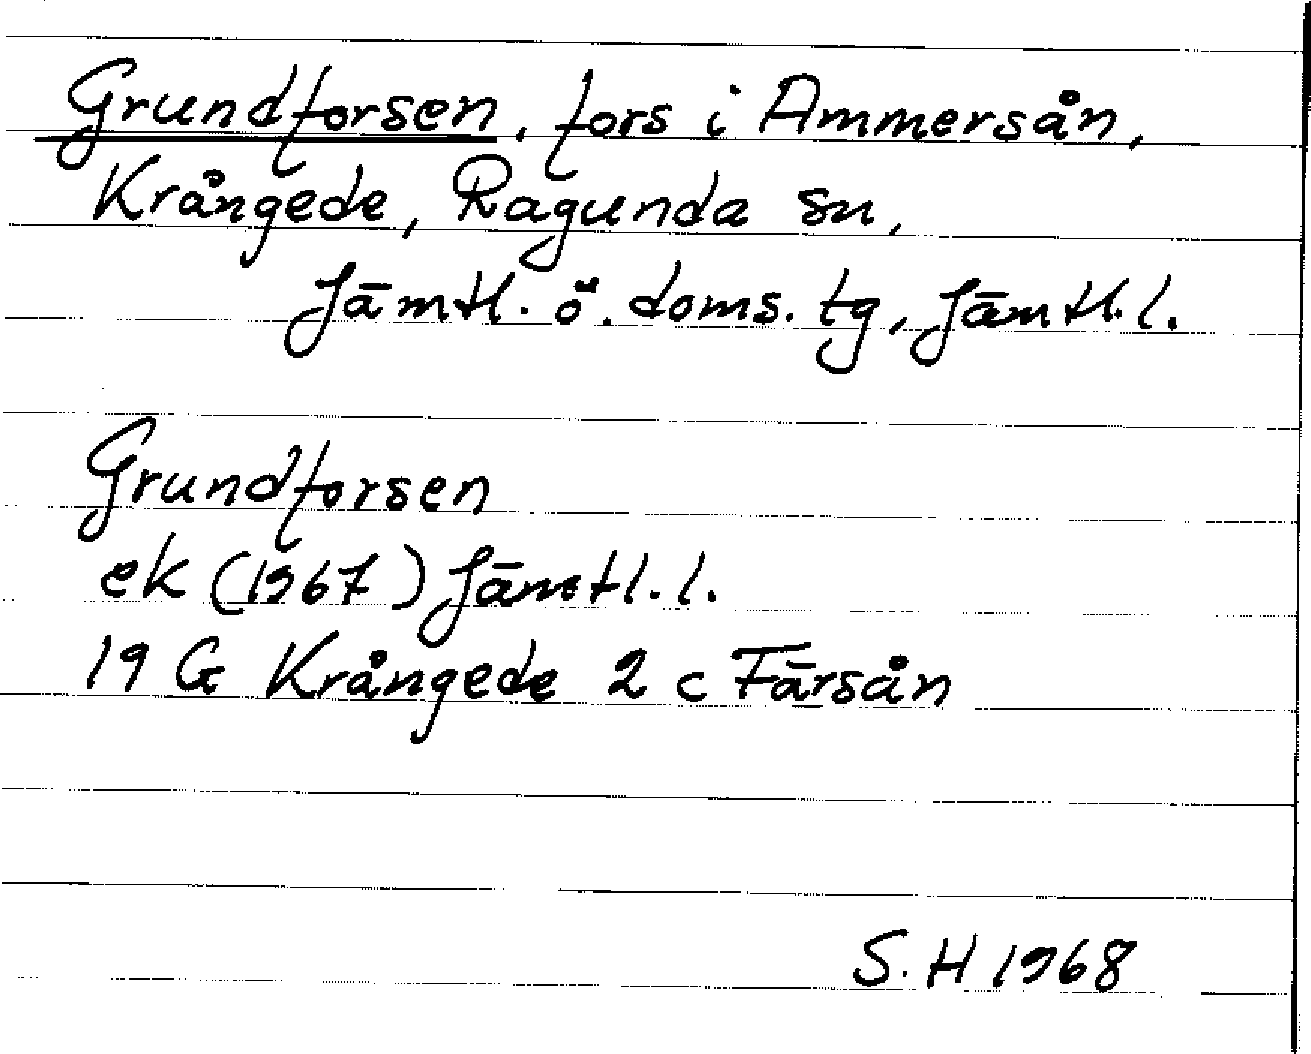 Grundforsen, fors i Ammersån,
Krångede, Ragunda sn,
Jämtl. ö. doms. tg, Jämtl. l.
Grundforsen
ek (1967) Jämtl. l.
19 G Krångede 2 c Färsån
S. H 1968